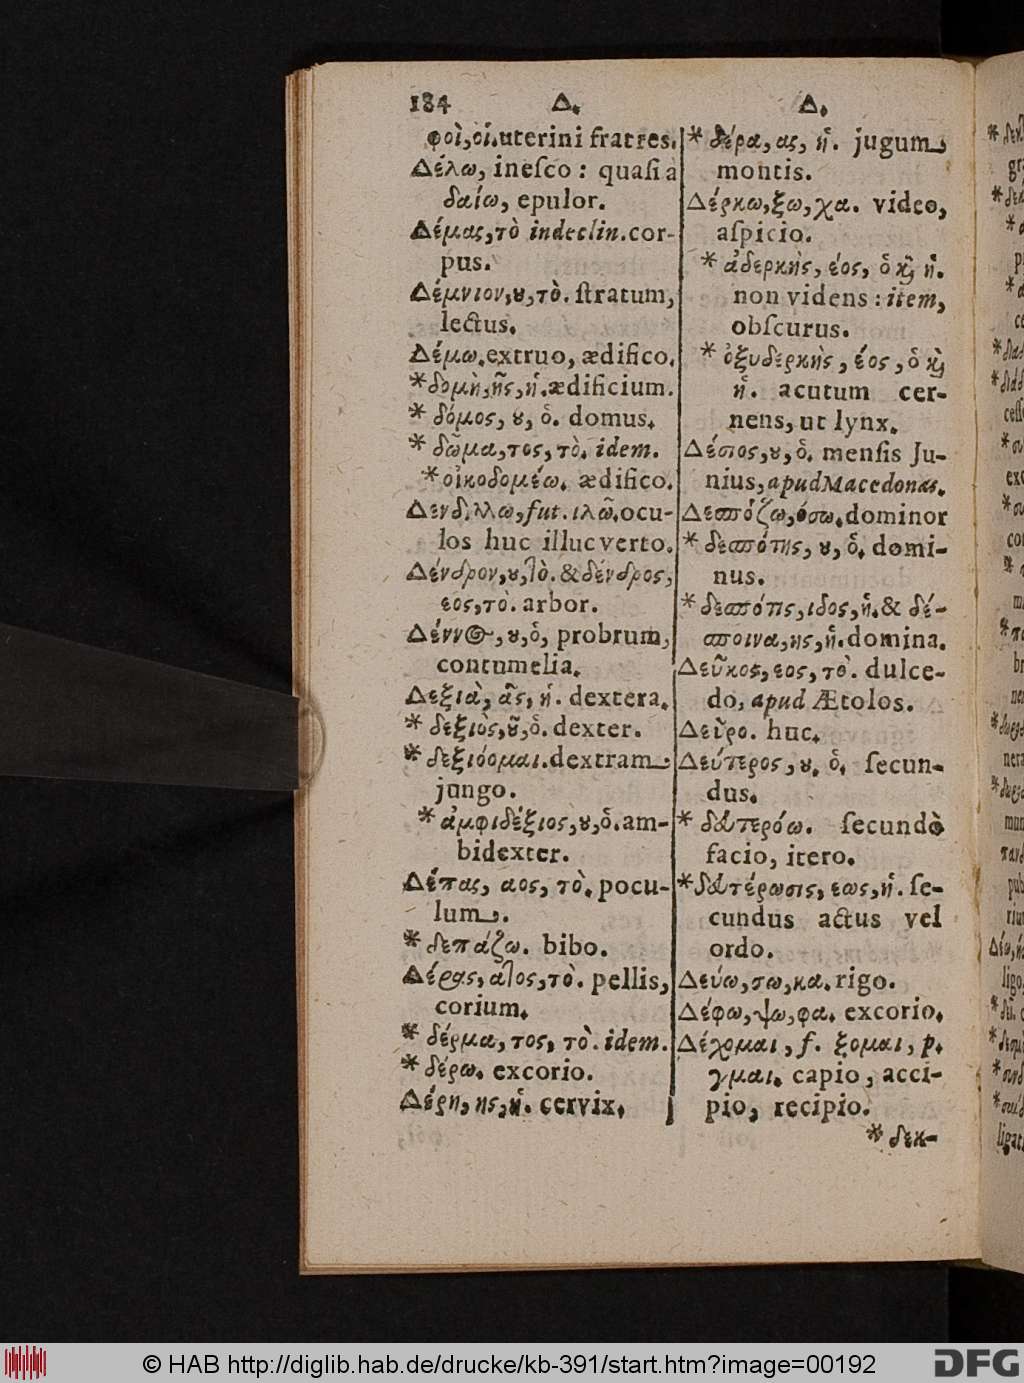 184 Δ. Δ.
φοὶ, οἱ. uterini fratres.
Δέλω, ineſco: quaſi a
δαίω, epulor.
Δέμας, τὸ indeclin. cor-
pus.
Δέμνιον, ȣ, τὸ. ſtratum,
lectus.
Δέμω. extruo, ædifico.
* δομὴ, ῆς, ἡ. ædificium.
* δόμος, ȣ, ὁ. domus.
* δῶμα, τος, τὸ. idem.
* οἰκοδομέω. ædifico.
Δενδίλλω, fut. ιλῶ. ocu-
los huc illuc verto.
Δένδρον, ȣ, τὸ. & δένδρος,
εος, τὸ. arbor.
Δέννος, ȣ, ὁ, probrum,
contumelia.
Δεξιὰ, ᾶς, ἡ. dextera.
* δεξιὸς, ȣ͂, ὁ. dexter.
* δεξιόομαι. dextram
jungo.
* ἀμφιδέξιος, ȣ, ὁ. am-
bidexter.
Δέπας, αος, τὸ. pocu-
lum.
* δεπάζω. bibo.
Δέρας, ατος, τὸ. pellis,
corium.
* δέρμα, τος, τὸ. idem.
* δέρω. excorio.
Δέρη, ης, ἡ. cervix.
* δέρα, ας, ἡ. jugum
montis.
Δέρκω, ξω, χα. video,
aſpicio.
* ἀδερκὴς, έος, ὁ ϗ ἡ.
non videns: item,
obſcurus.
* ὀξυδερκὴς, έος, ὁ ϗ
ἡ. acutum cer-
nens, ut lynx.
Δέσιος, ȣ, ὁ. menſis Ju-
nius, apud Macedonas.
Δεσπόζω, όσω. dominor
* δεσπότης, ȣ, ὁ. domi-
nus.
* δεσπότις, ιδος, ἡ. & δέ-
σποινα, ης, ἡ. domina.
Δεῦκος, εος, τὸ. dulce-
do, apud Ætolos.
Δεῦρο. huc.
Δεύτερος, ȣ. ὁ. ſecun-
dus.
* δευτερόω. ſecundò
facio, itero.
* δευτέρωσις, εως, ἡ. ſe-
cundus actus vel
ordo.
Δεύω, σω, κα. rigo.
Δέφω, ψω, φα. excorio.
Δέχομαι, f. ξομαι, p.
γμαι. capio, acci-
pio, recipio.
* δεκ-
© HAB http://diglib.hab.de/drucke/kb-391/start.htm?image=00192
DFG